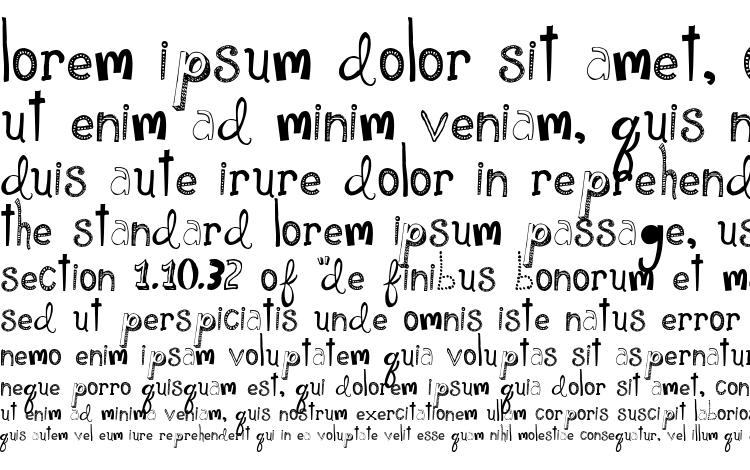 lorem ipsum dolor sit amet, c
ut enim ad minim veniam, quis n
duis aute irure dolor in reprehend
the standard lorem ipsum passage, us
section 1.10.32 of "de finibus bonorum et m
sed ut perspiciatis unde omnis iste natus error
nemo enim ipsam voluptatem quia voluptas sit aspernatur
neque porro quisquam est, qui dolorem ipsum quia dolor sit amet, con
ut enim ad minima veniam, quis nostrum exercitationem ullam corporis suscipit laborios
quis autem vel eum iure reprehenderit qui in ea voluptate velit esse quam nihil molestiae consequatur, vel illum qui